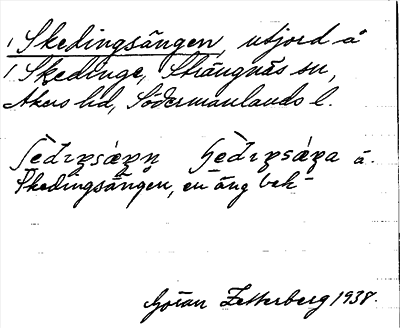 Skedingsängen, utjord å
Skedinge, Strängnäs sn,
Åkers hd, Södermanlands l.
Skedingsängen, en äng bek
Göran Zetterberg 1938.